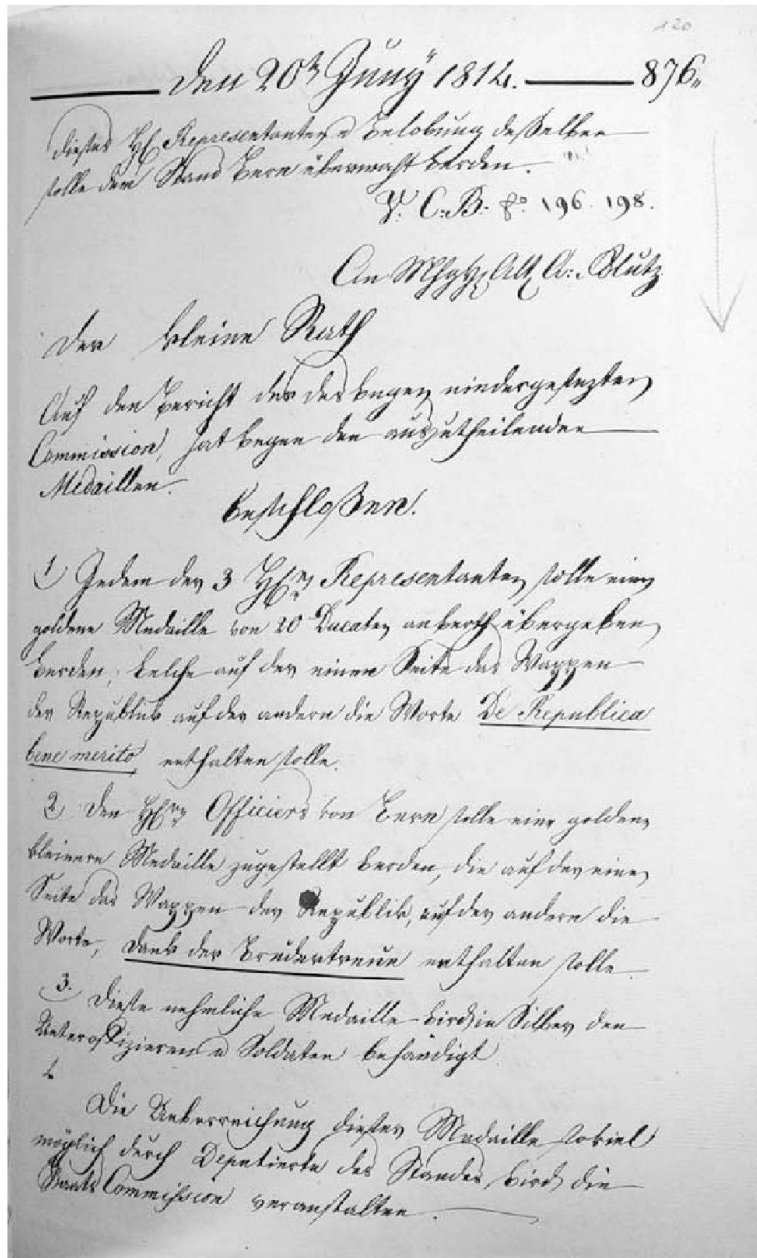 120
Den 20t Juny 1814. 876.
dieser HH. Representanten u Belobung desselben
solle dem Stand Bern übermacht werden.
V. C: B: fo. 196. 198.
An MhghH. Alt A: Glutz
Der kleine Rath
Auf den Bericht der deswegen niedergesezten
Commission, hat wegen den auszutheilenden
Medaillen.
beschloßen.
1 Jedem der 3 HHrn Representanten solle eine
goldene Medaille von 20 Ducaten anwerth übergeben
werden, welche auf der einen Seite das Wappen
der Republik auf der andern die Worte De Republica
bene merito enthalten solle.
2 Den HHrn Officiers von Bern solle eine goldene
kleinere Medaille zugestellt werden, die auf der einen
Seite das Wappen der Republik, auf der andern die
Worte, Dank der Brudertreue enthalten solle.
3. Diese nehmliche Medaille wird in Silber den
Unteroffizieren u Soldaten behändigt
4
Die Ueberreichung dieser Medaille soviel
möglich durch Deputierte des Standes, wird die
Staats Commission veranstalten.